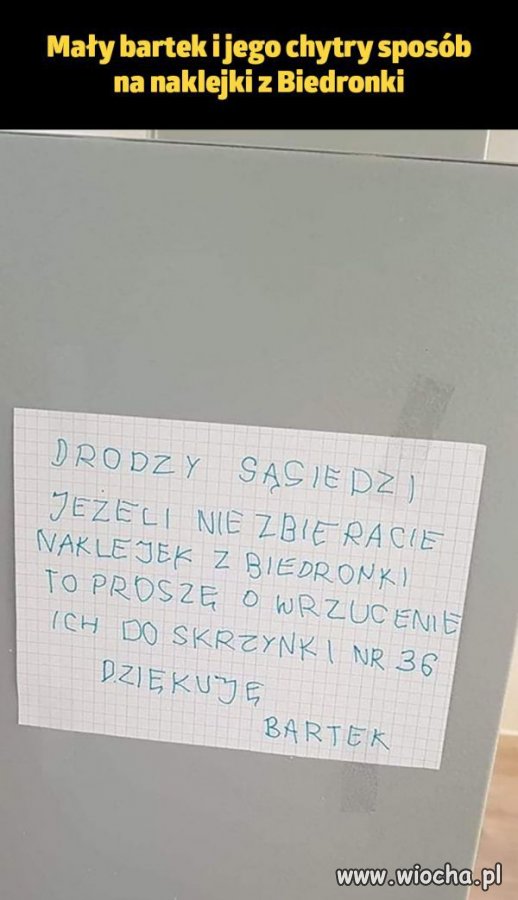 Mały bartek i jego chytry sposób
na naklejki z Biedronki
DRODZY SĄSIEDZI
JEŻELI NIE ZBIERACIE
NAKLEJEK Z BIEDRONKI
TO PROSZĘ O WRZUCENIE
ICH DO SKRZYNKI NR 36
DZIĘKUJĘ
BARTEK
www.wiocha.pl